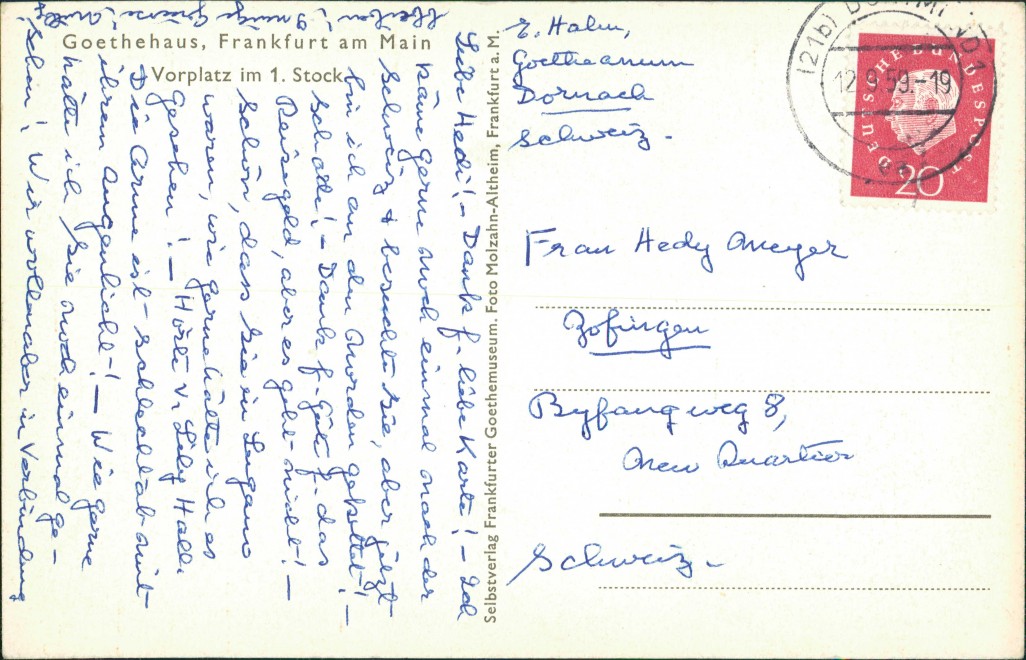 Goethehaus, Frankfurt am Main
Vorplatz im 1. Stock
Liebe Hedi! – Dank f. liebe Karte! – Ich
käme gerne noch einmal nach der
Schweiz & besuchte Sie, aber jetzt
bin ich an den Norden gekettet! –
Schade! – Dank f. Gök f. das
Reisegeld, aber es geht nicht! –
Schön, dass Sie in Lugano
waren, wie gerne hätte ich es
gesehen! – Hörte v. Lily Halle
Die Arme ist schlecht ab mit
ihrem Augenlicht! – Wie gerne
hätte ich Sie noch einmal ge-
sehen! Wir wollen aber in Verbindung
bleiben!
Grüsse
Selbstverlag Frankfurter Goethemuseum. Foto Molzahn-Altheim, Frankfurt a. M.
E. Halm,
Goetheanum
Dornach
Schweiz –
(21b) DORTMUND 1
12.9.59.-19
DEUTSCHE BUNDESPOST
20
Frau Hedy Meyer
Zofingen
Byfangweg 8,
Neu Quartier
Schweiz –